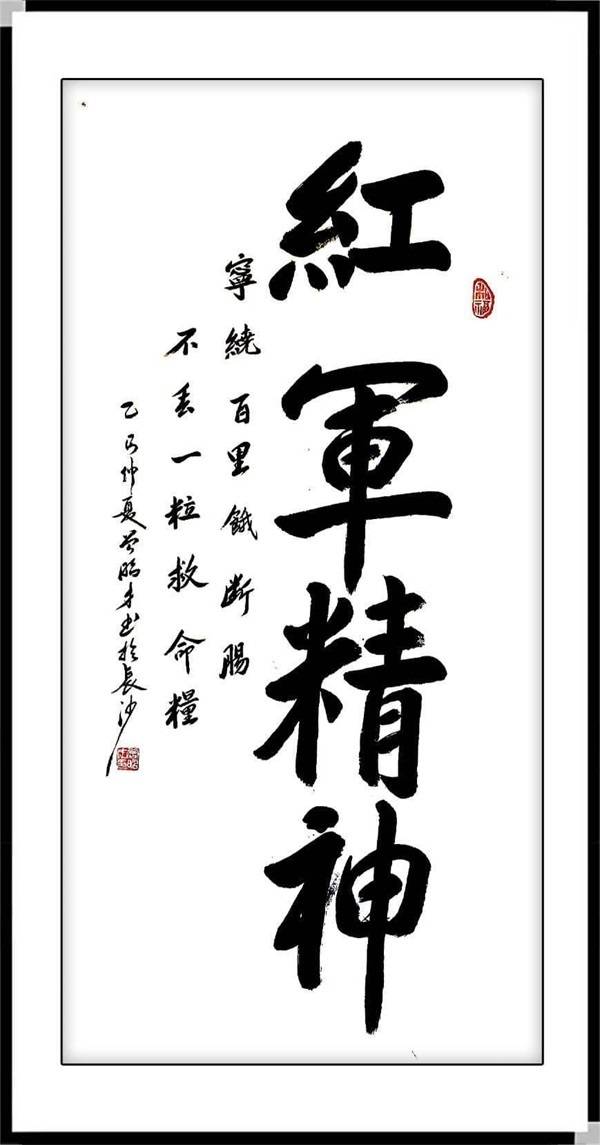 紅軍精神
寧繞百里餓斷腸
不丢一粒救命糧
乙巳仲夏曾昭书於長沙